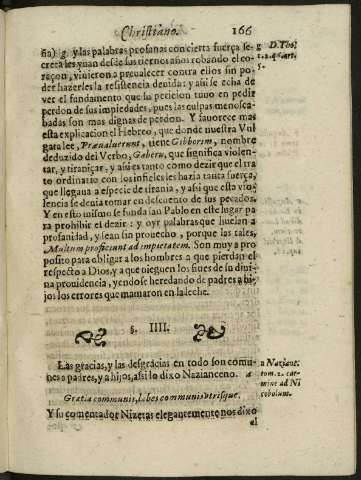 Christiano. 166
ña) g y las palabras profanas con cierta fuerça se-
creta les yuan desde sus tiernos años robando el co-
raçon, vinieron a preualecer contra ellos sin po-
der hazerles la resistencia deuida: y assi se echa de
ver el fundamento que su peticion tuuo en pedir
perdon de sus impiedades, pues las culpas menosca-
badas son mas dignas de perdon. Y fauorece mas
esta explicacion el Hebreo, que donde nuestra Vul
gata lee, Præualuerunt, tiene Gibborim, nombre
deduzido del Verbo, Gaberu, que significa violen-
tar, y tiraniçar, y assi es tanto como dezir que el tra
to ordinario con los infieles les hazia tanta fuerça,
que llegaua a especie de tirania, y assi que esta vio-
lencia se deuia tomar en descuento de sus pecados.
Y en esto mismo se funda san Pablo en este lugar pa
ra prohibir el dezir: y oyr palabras que huelan a
profanidad, y sean sin prouecho, porque las tales,
Multum proficiunt ad impietatem. Son muy a pro
posito para obligar a los hombres a que pierdan el
respecto a Dios, y a que nieguen los fines de su diui-
na prouidencia, yendose heredando de padres a hi-
jos los errores que mamaron en la leche.
g D. Tho.
1. 2. q. art.
5.
§. IIII.
Las gracias, y las desgracias en todo son comu-
nes a padres, y a hijos, assi lo dixo Nazianceno. a
Gratia communis, labes communis vtrisque.
Y su comentador Nizetas elegantemente nos dixo
el
a Nazianc.
tom. 2. car-
mine ad Ni
cobolum.